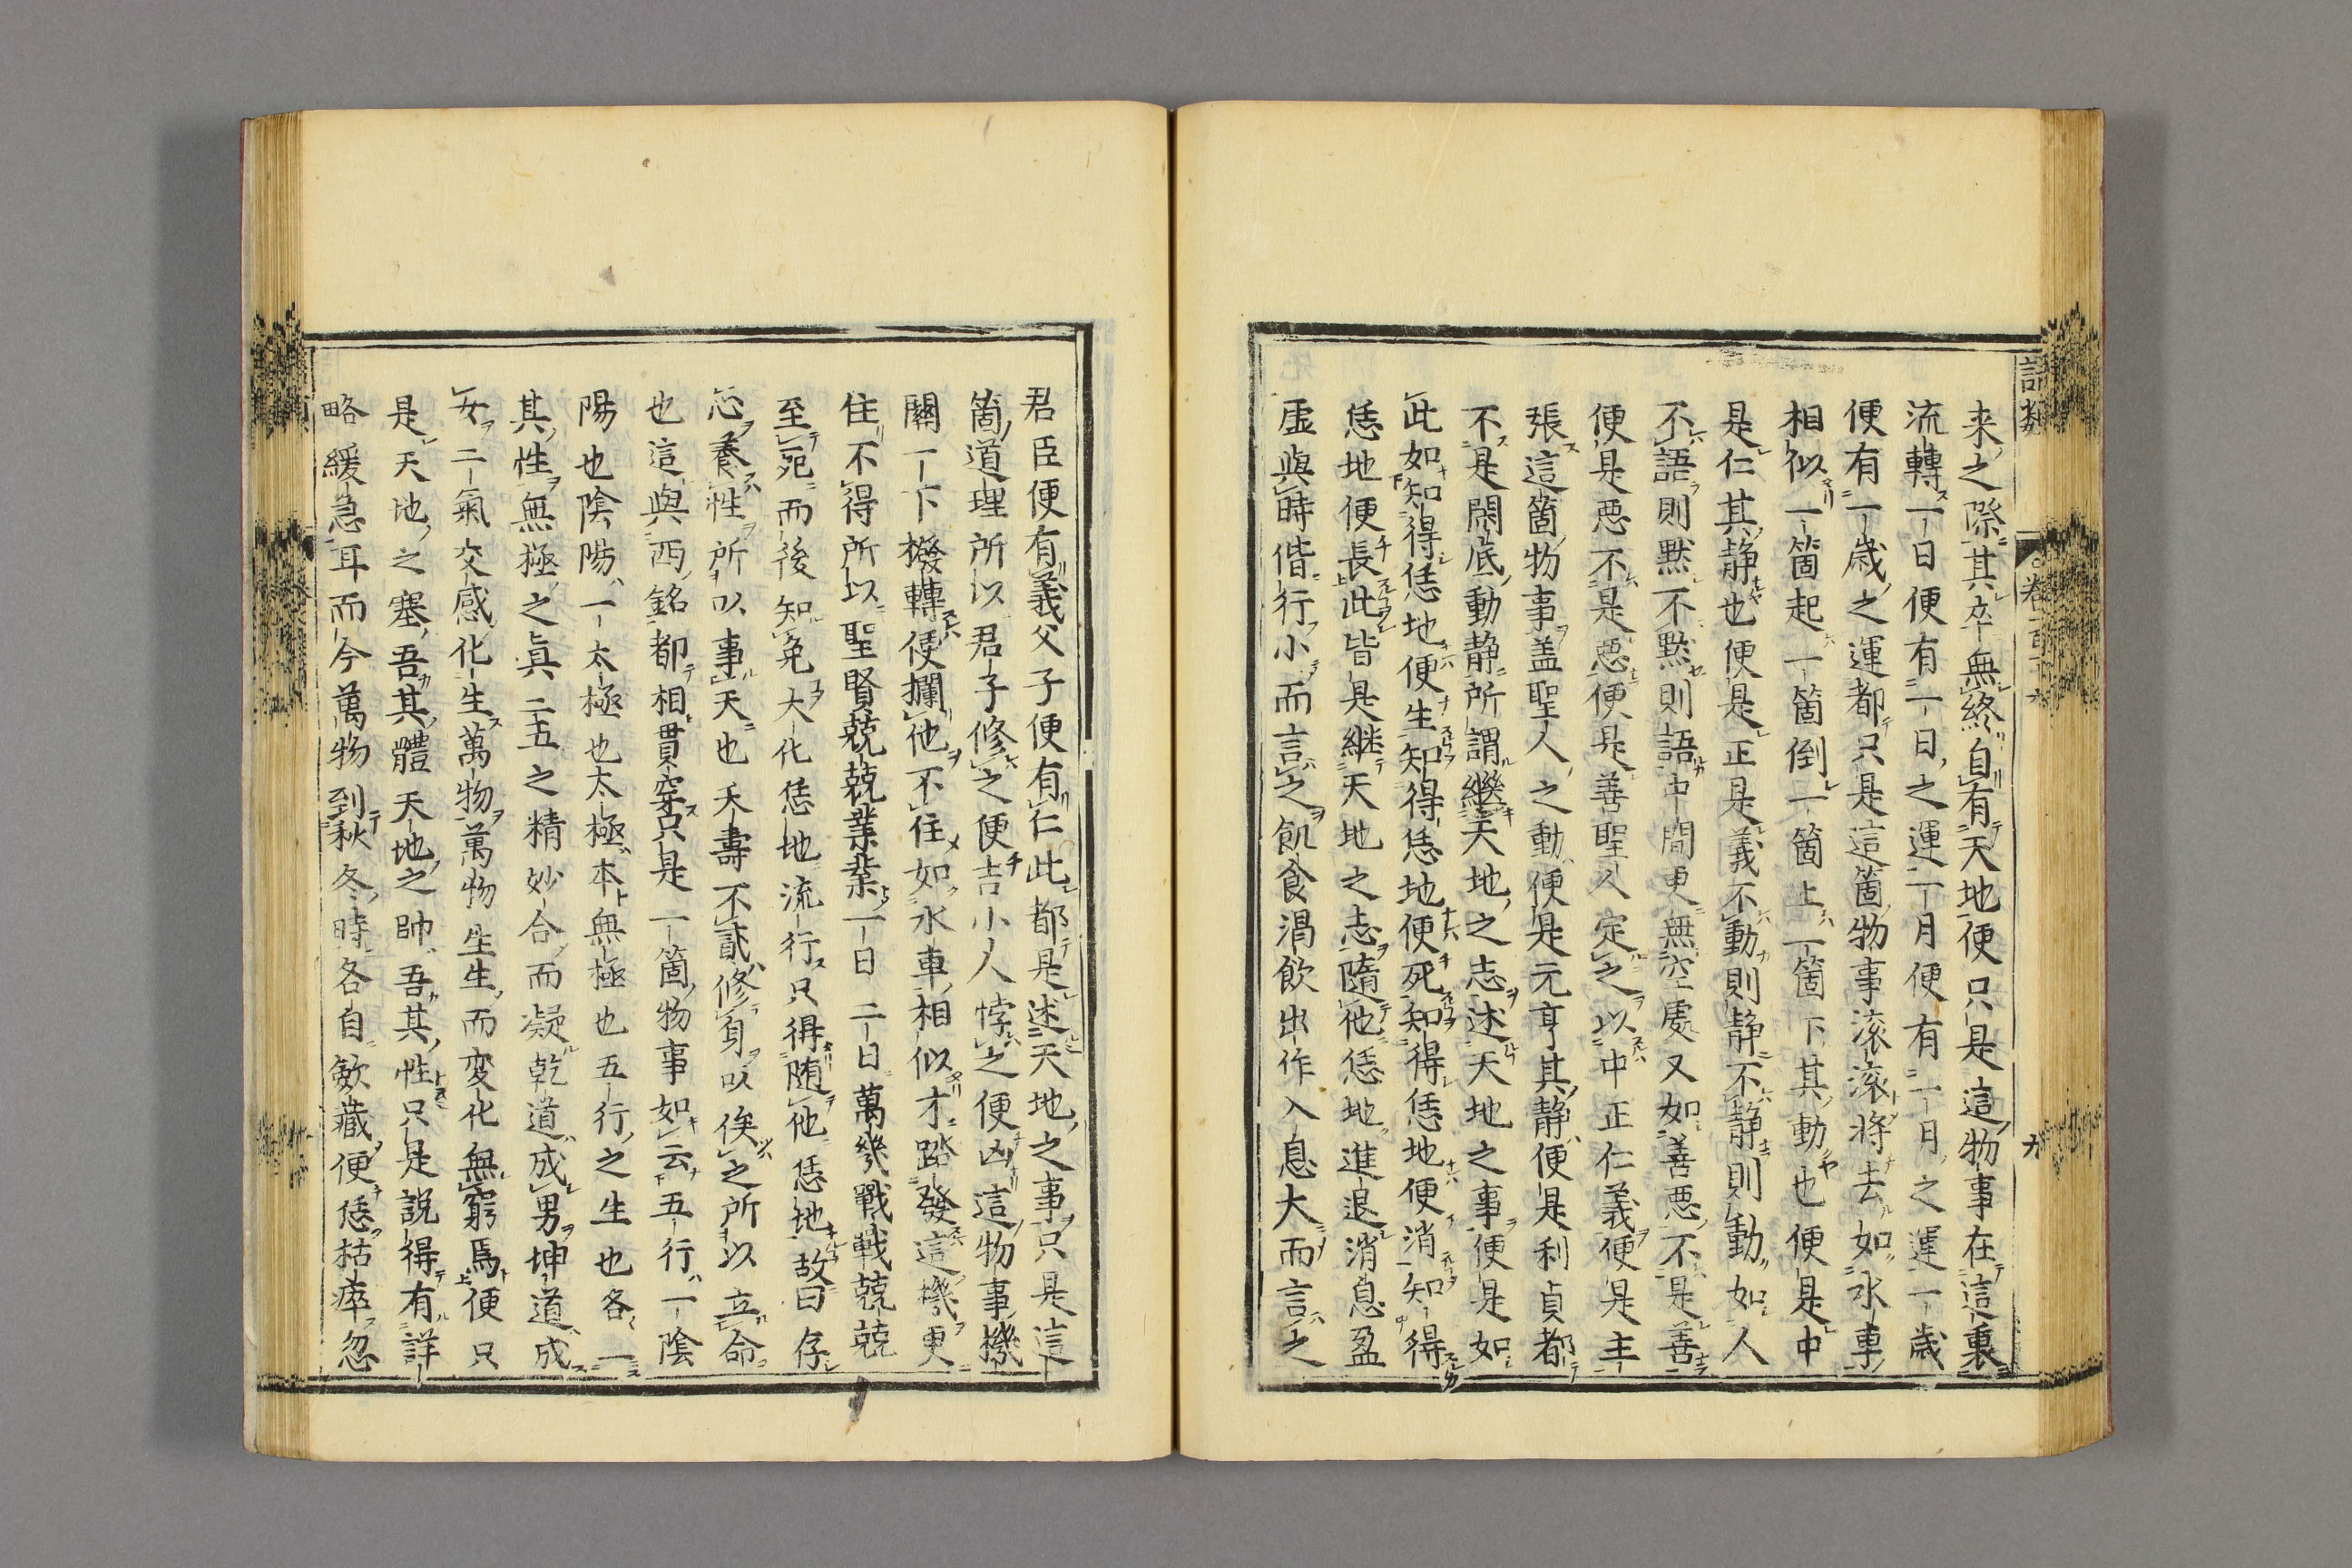 来之際其卒無終自有天地便只是這物事在這裏
流轉一日便有一日之運一月便有一日之運一歳
便有一歳之運都只是這箇物事滚滚將去如水車
相似一箇起一箇倒一箇上一箇下其動也便是中
是仁其静也便是正是義不動則静不静則動如人
不語則黙不黙則語中間更無空處又如善悪不是善
便是悪不是悪便是善聖人定之以中正仁義便是主
張這箇物事盖聖人之動便是元亨其静便是利貞都
不是閑底動静所謂繼天地之志述天地之事便是如
此如知得恁地便生知得恁地便死知得恁地便消知得
恁地便長此皆是継天地之志隨他恁地進退消息盈
虚與時偕行小而言之飢食渇飲出作入息大而言之
君臣便有義父子便有仁此都是述天地之事只是這
箇道理所以君子修之便吉小人悖之便凶這物事機
關一下撥轉便攔他不住如水車相似才踏發這機更
住不得所以聖賢兢兢業業一日二日萬幾戰戰兢兢
至死而後知免大化恁地流行只得随他恁地故曰存
心養性所以事天也夭壽不貳修身以俟之所以立命
也這與西銘都相貫穿只是一箇物事如云五行一陰
陽也陰陽一太極也太極本無極也五行之生也各一
其性無極之真二五之精妙合而凝乾道成男坤道成
女二氣交感化生萬物萬物生生而変化無窮焉便只
是天地之塞吾其體天地之帥吾其性只是説得有詳
略緩急耳而今萬物到秋冬時各自斂藏便恁枯瘁忽
語類
卷百十六
九